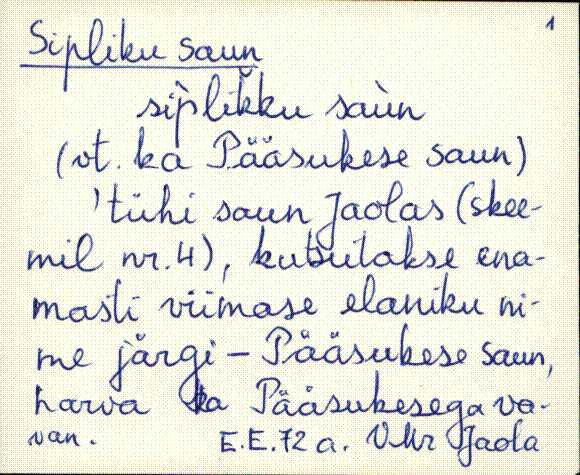 1
Sipliku saun
sìplikku saùn
(vt. ka Pääsukese saun)
'tühi saun Jaolas (skee-
mil nr. 4), kutsutakse ena-
masti viimase elaniku ni-
me järgi – Pääsukese saun,
harva ka Pääsukesega va-
van. E.E. 72 a. VMr Jaola